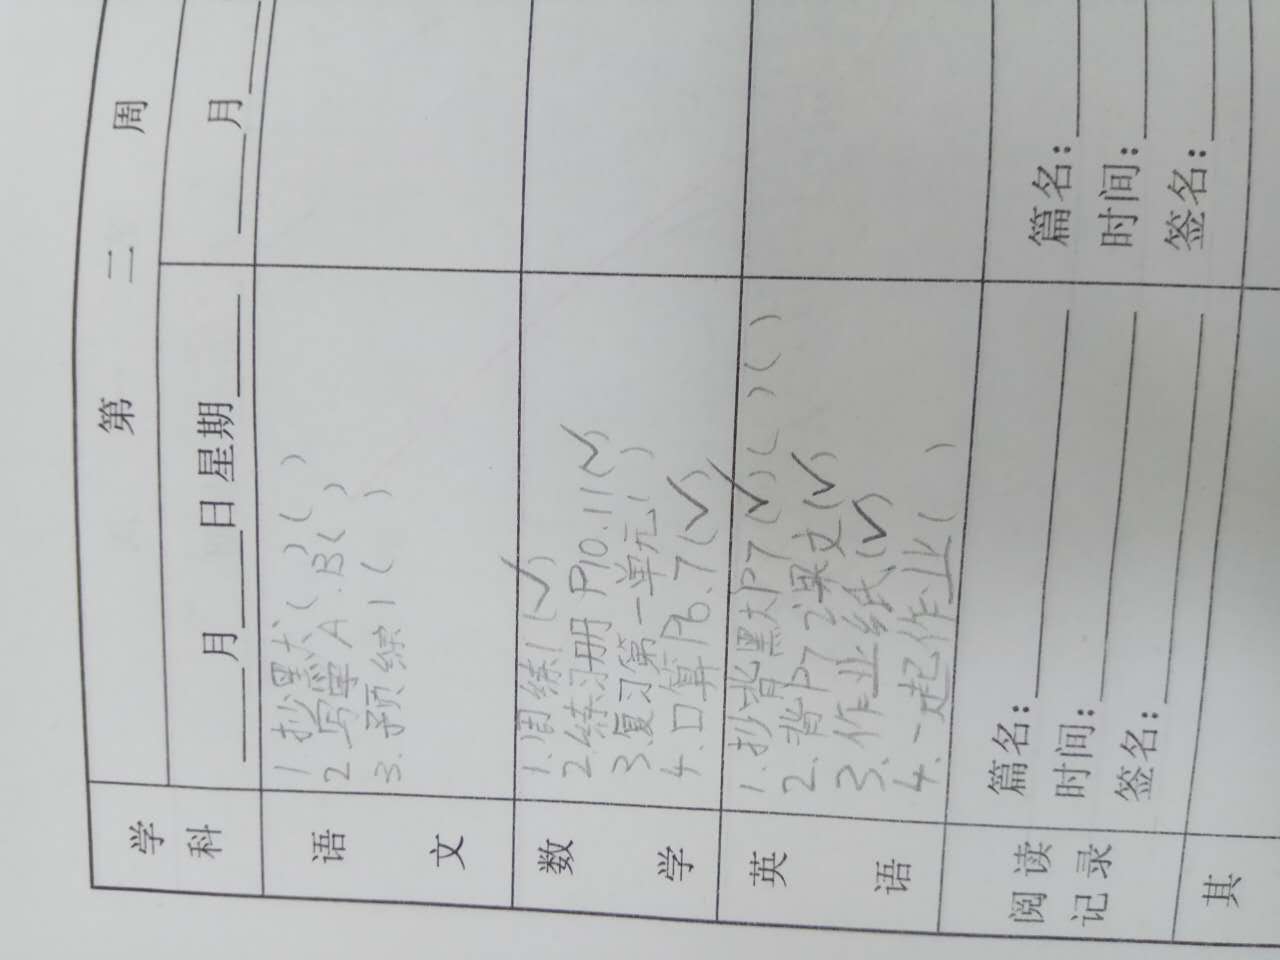 第 二 周
学科 ____月____日 星期____ ____月____
语文
1.抄墨犬( )( )
2.写字A.B( )
3.预练1( )
数学
1.周练1(√)
2.练习册P10.11(√)
3.复习第一单元( )
4.口算P6.7(√)
英语
1.抄背黑犬P7(√)( )( )
2.背P7课文(√)
3.作业纸(√)
4.一起作业( )
阅读记录
篇名:____ 篇名:____
时间:____ 时间:____
签名:____ 签名:____
其